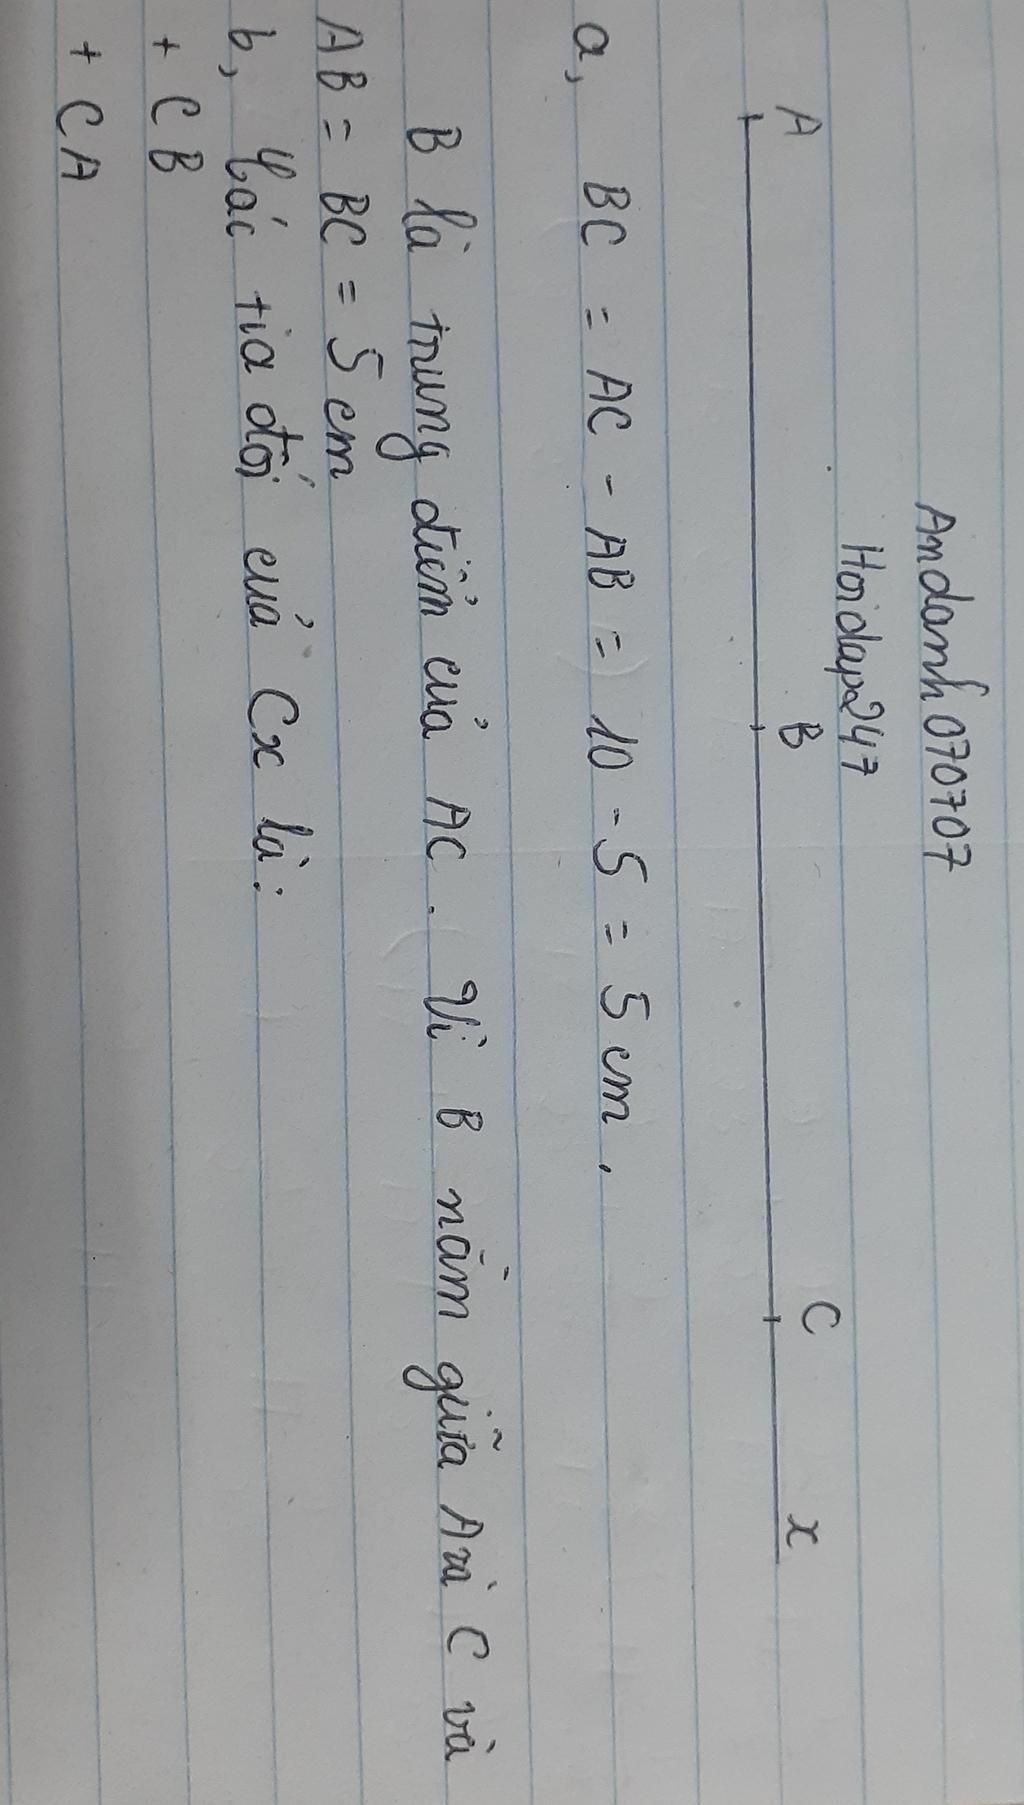 Andanh070707
Hoidap247
A B C x
a, BC = AC - AB = 10 - 5 = 5 cm.
B là trung điểm của AC. Vì B nằm giữa A và C và
AB = BC = 5 cm
b, Các tia đối của Cx là:
+ CB
+ CA